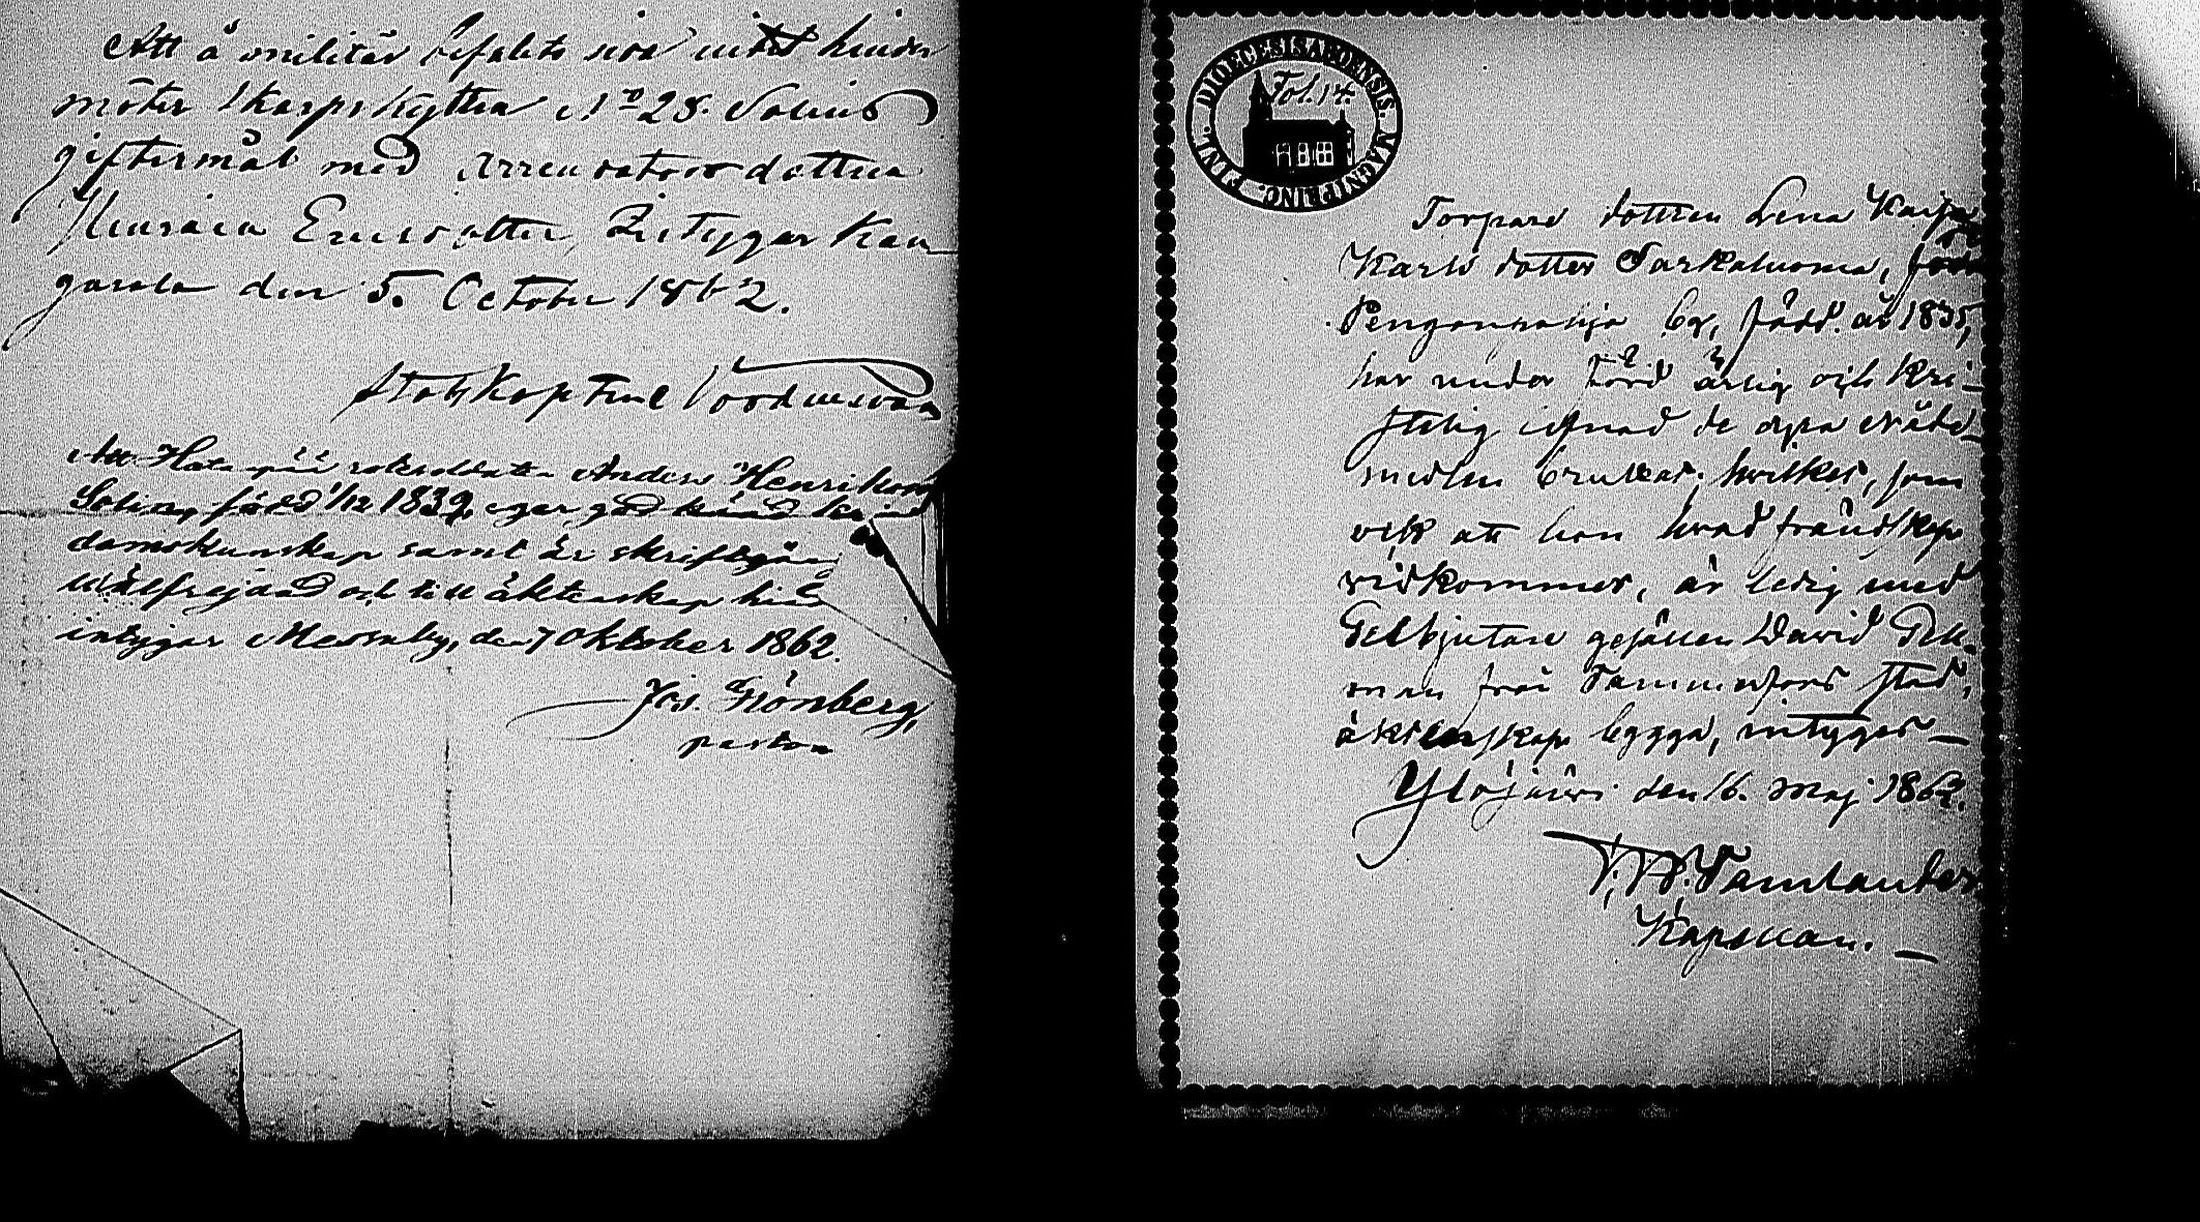 Att å militär befälets sida intet hinder
möter Skarpskytten No 28. Solins
giftermål med Arrendators dottern
Ericsdotter, Betygar Kan
gasala den 5. October 1862.
Stabskapten
Att Hatanpää rotesoldaten Anders Henriksson
Solin, född 1/12 1839, eger god känd
domskunskap samt är skriftgån
wälfrejdad och till äktenskap
intygar Messuby, den 7 Oktober 1862.
Joh. Grönberg,
pastor
DIOECESIS ABOENSIS. MAGNI PRINC. FINL.
Fol. 14.
Torpare dottren Lena Kaisa
Karls dotter Sarkaluoma, från
Pengonpohja by, född år 1835,
har under ärlig och kri-
stelig lefnad de dyra nåde-
medlen brukat; hvilket, som
ock att hon hvad frändskap
vidkommer, är ledig med
Gelbjutare gesällen David Ek-
man från Tammerfors stad,
äktenskap bygga, intygas —
Ylöjärvi den 16. Maj 1862.
Tamlander
Kapellan. —